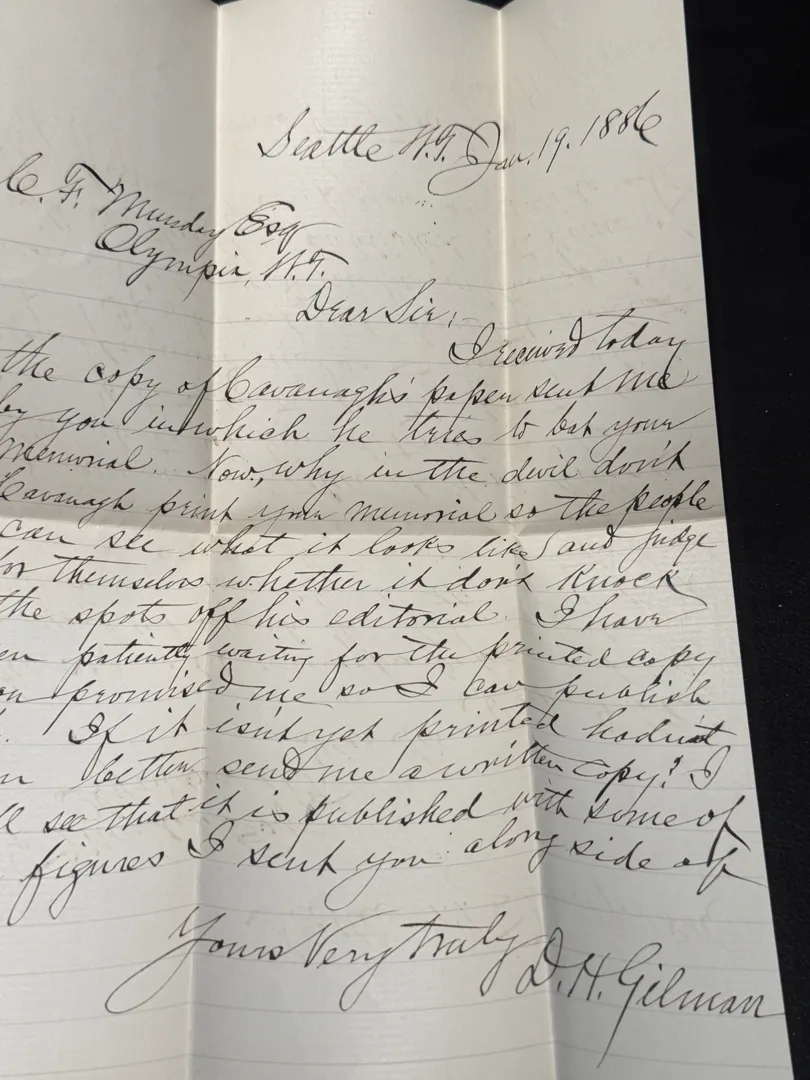 Seattle W.T. Jan. 19. 1886
C. F. Munday Esq
Olympia, W.T.
Dear Sir;-
I received today
the copy of Cavanagh's paper sent me
by you in which he tries to bat your
Memorial. Now, why in the devil don't
Cavanagh print your memorial so the people
can see what it looks like and judge
for themselves whether it don't Knock
the spots off his editorial. I have
en patiently waiting for the printed copy
ou promised me so I can publish
. If it isn't yet printed hadn't
better send me a written copy? I
ll see that it is published with some of
figures I sent you along side of
Yours Very truly
D. H. Gilman